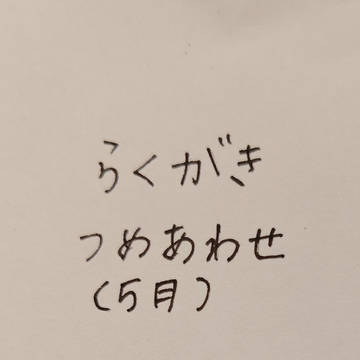 らくがき
つめあわせ
(5月)